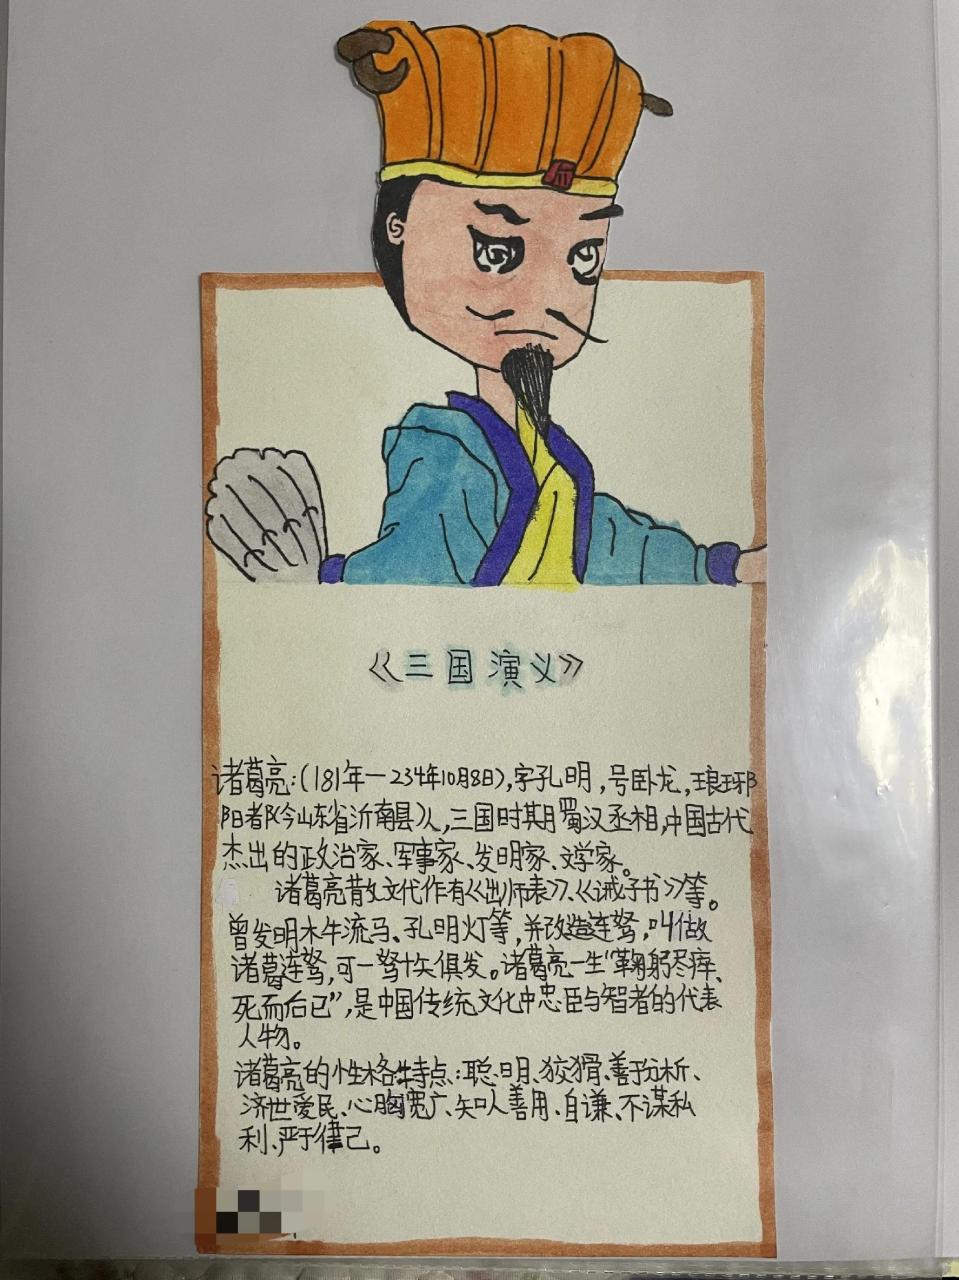 《三国演义》
诸葛亮:(181年一234年10月8日),字孔明,号卧龙,琅琊
阳都(今山东省沂南县)人,三国时期蜀汉丞相,中国古代
杰出的政治家、军事家、发明家、文学家。
诸葛亮散文代作有《出师表》、《诫子书》等。
曾发明木牛流马、孔明灯等,并改造连弩,叫做
诸葛连弩,可一弩十矢俱发。诸葛亮一生“鞠躬尽瘁、
死而后已”,是中国传统文化中忠臣与智者的代表
人物。
诸葛亮的性格特点:聪明、狡猾、善于分析、
济世爱民、心胸宽广、知人善用、自谦、不谋私
利、严于律己。